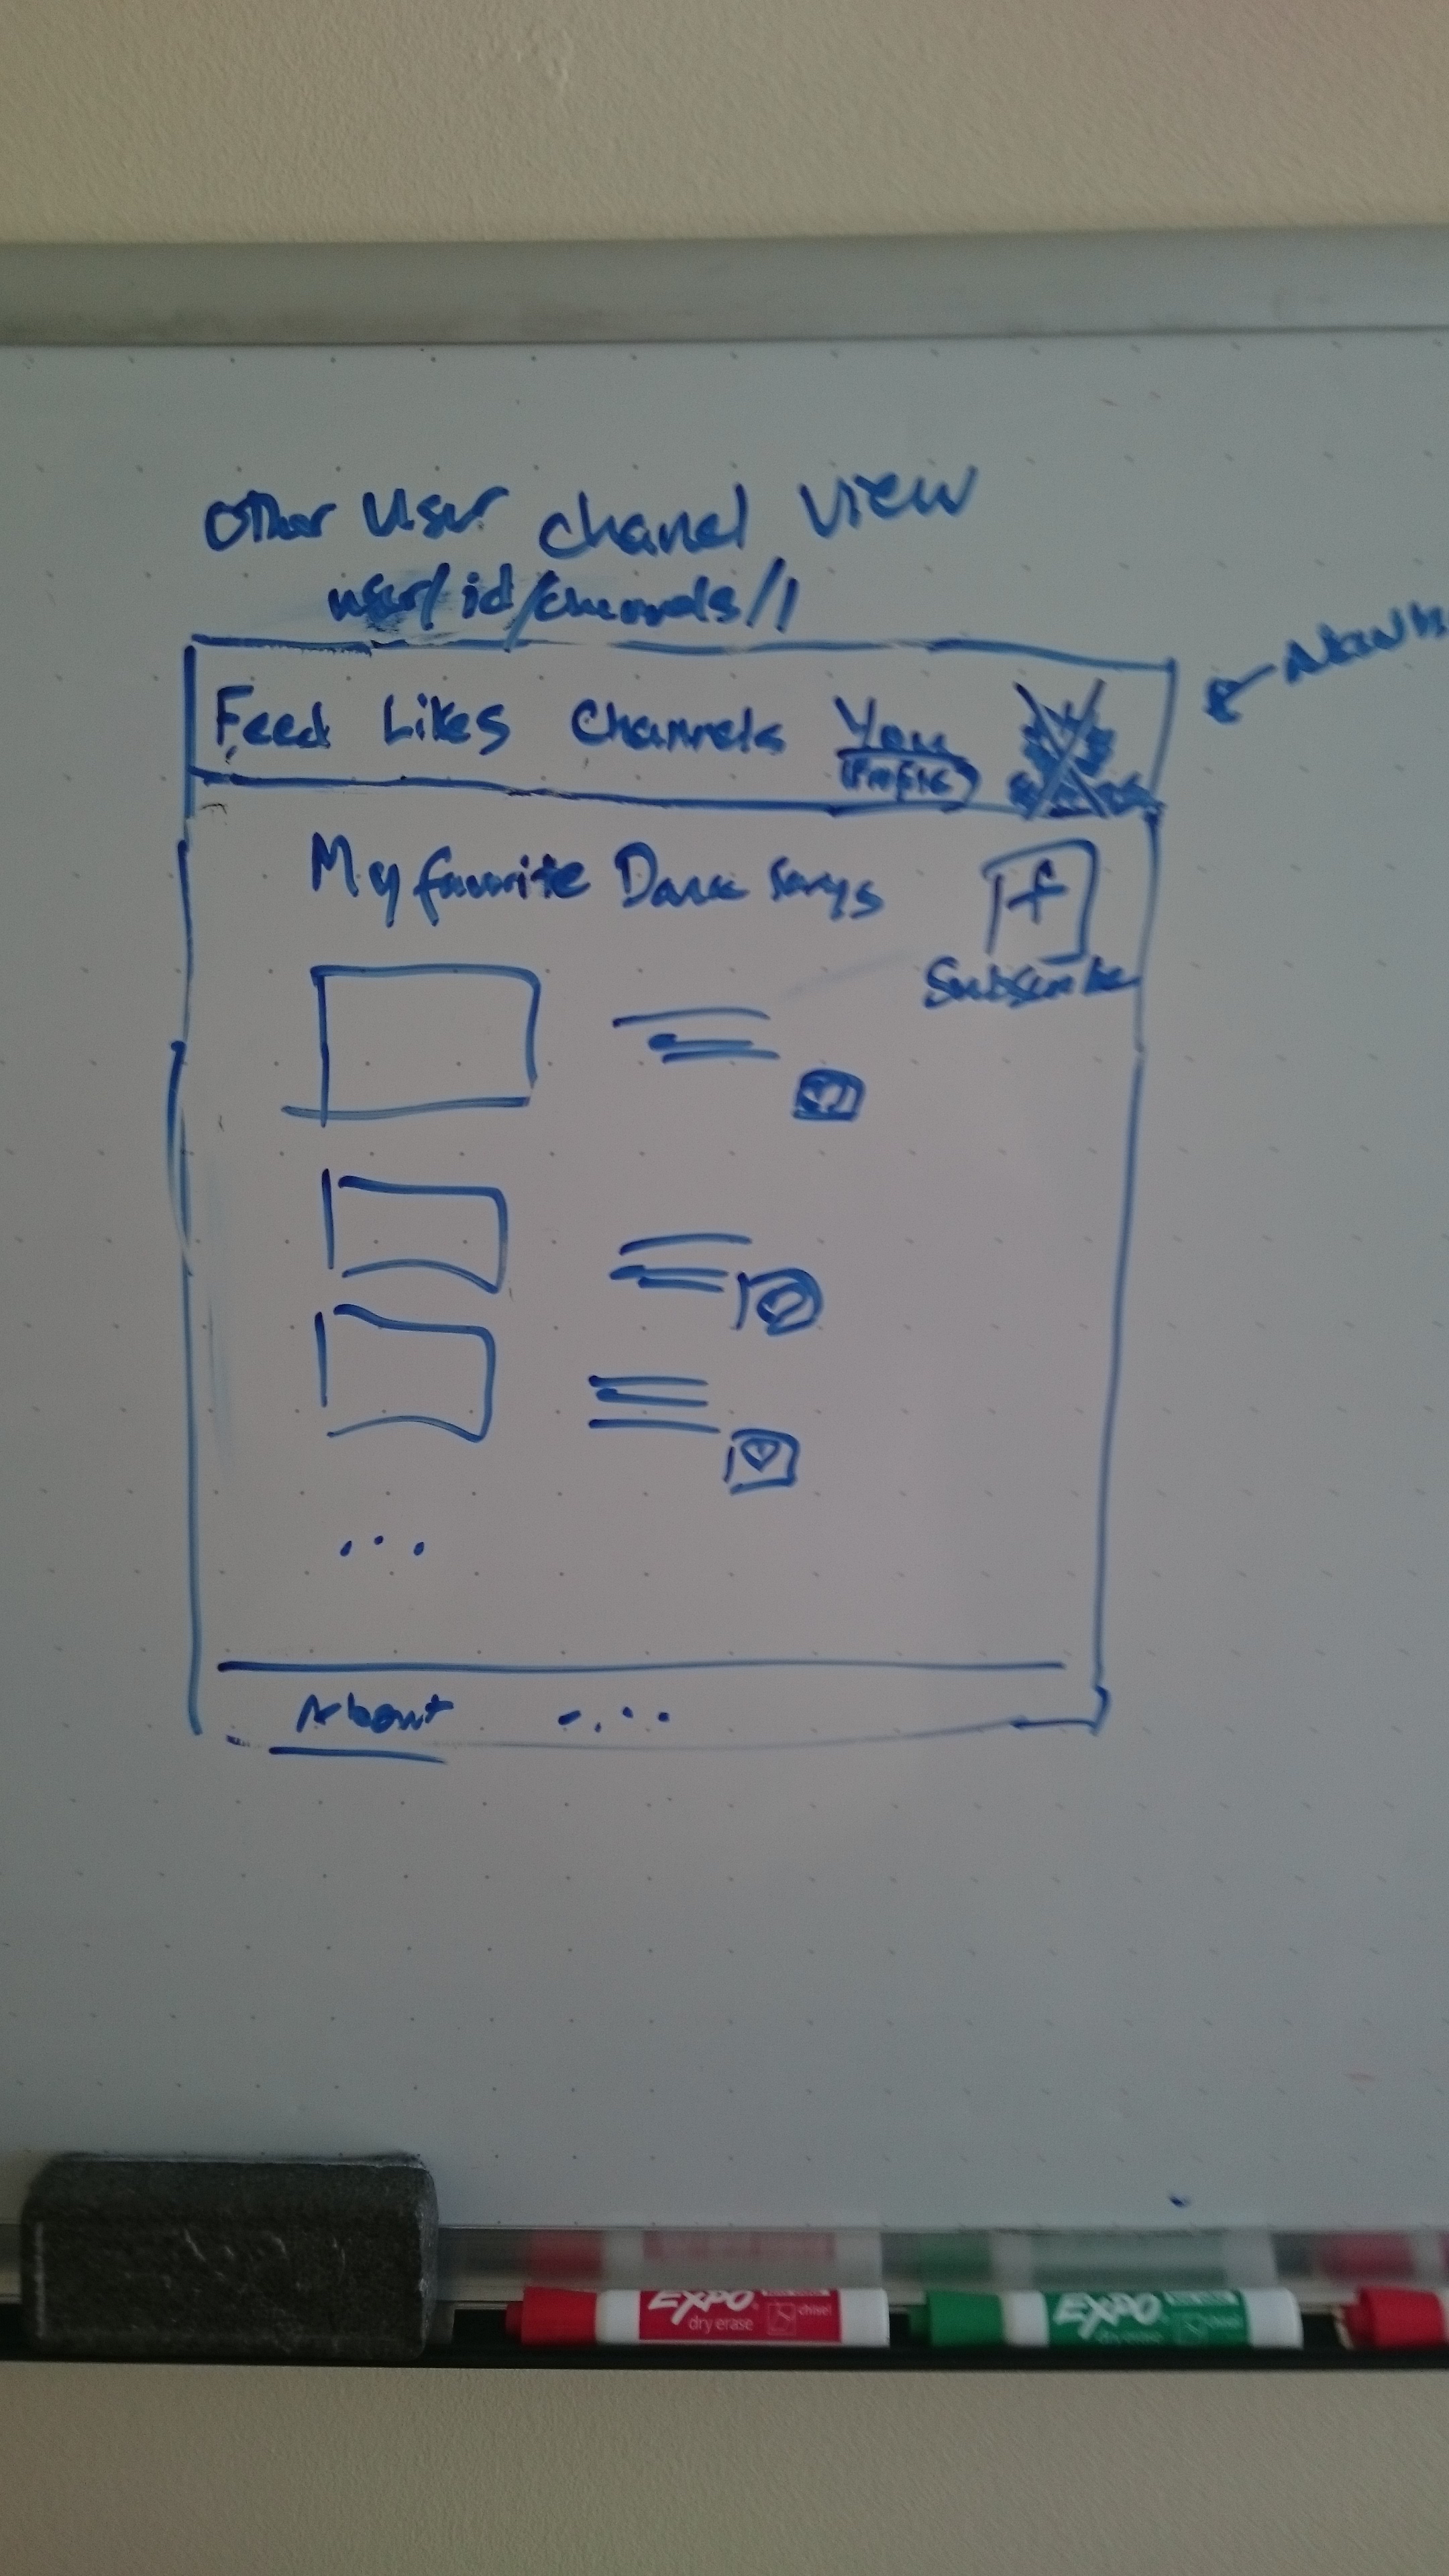 Other User chanel view
user/id/channels/1
Feed Likes Channels You
Profile
My favorite Dance songs
+
Subscribe
...
About ....
EXPO
dry erase
chisel
EXPO
dry erase